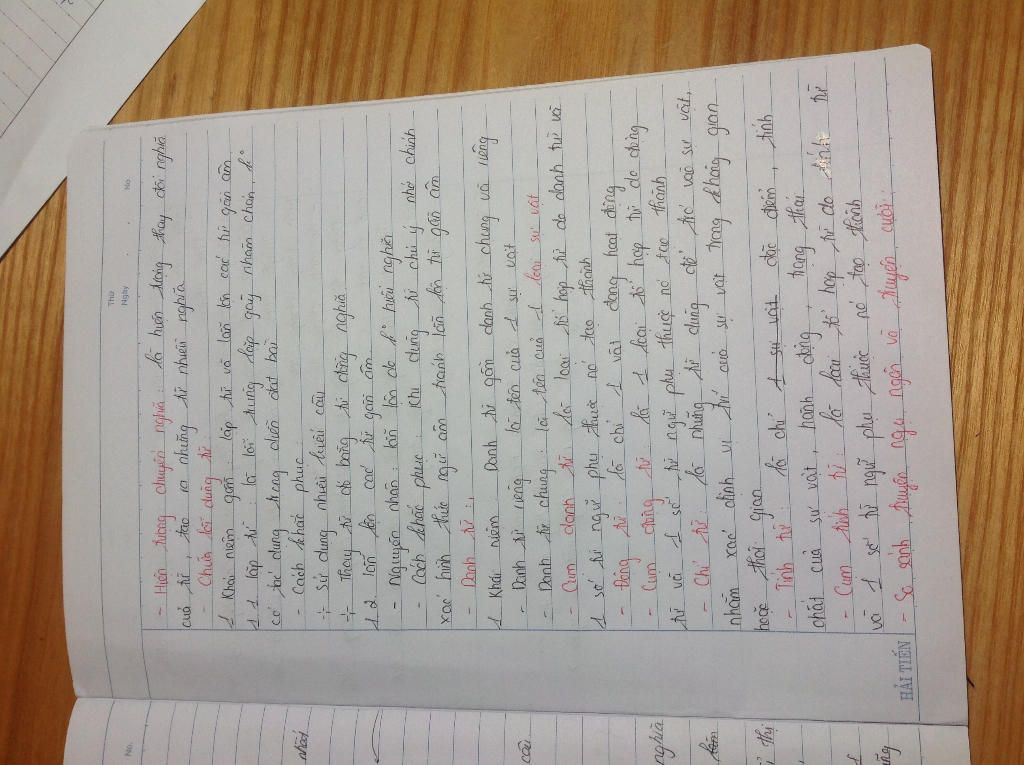 Thứ
Ngày
No.
- Hiện tượng chuyển nghĩa: là hiện tượng thay đổi nghĩa
của từ, tạo ra những từ nhiều nghĩa.
- Chữa lỗi dùng từ
1 Khái niệm gồm: lặp từ và lẫn lộn các từ gần âm
1.1 lặp từ: là lỗi trung lặp gây nhàm chán, k°
có tác dụng trong diễn đạt bài
- cách khắc phục:
+ sử dụng nhiều kiểu câu
+ Thay từ đó bằng từ đồng nghĩa
1.2 lẫn lộn các từ gần âm
- Nguyên nhân: lẫn do k° hiểu nghĩa
- Cách khắc phục: Khi dùng từ chú ý nhớ chính
xác hình thức ngữ âm tránh lẫn lộn từ gần âm
- Danh từ:
1 Khái niệm: Danh từ gồm danh từ chung và riêng
- Danh từ riêng: là tên của 1 sự vật
- Danh từ chung: là tên của 1 loại sự vật
- Cụm danh từ: là loại tổ hợp từ do danh từ và
1 số từ ngữ phụ thuộc nó tạo thành
- Động từ: là chỉ 1 vật đang hoạt động
- Cụm động từ: là 1 loại tổ hợp từ do động
từ và 1 số từ ngữ phụ thuộc nó tạo thành
- Chỉ từ: là những từ dùng để trỏ vào sự vật,
nhằm xác định vị trí của sự vật trong không gian
hoặc thời gian
- Tính từ: là chỉ 1 sự vật đặc điểm, tính
chất của sự vật, hành động, trạng thái
- Cụm tính từ: là loại tổ hợp từ do tính từ
và 1 số từ ngữ phụ thuộc nó tạo thành
- So sánh truyện ngụ ngôn và truyện cười:
HẢI TIẾN
No.
câu
nghĩa
thị
1